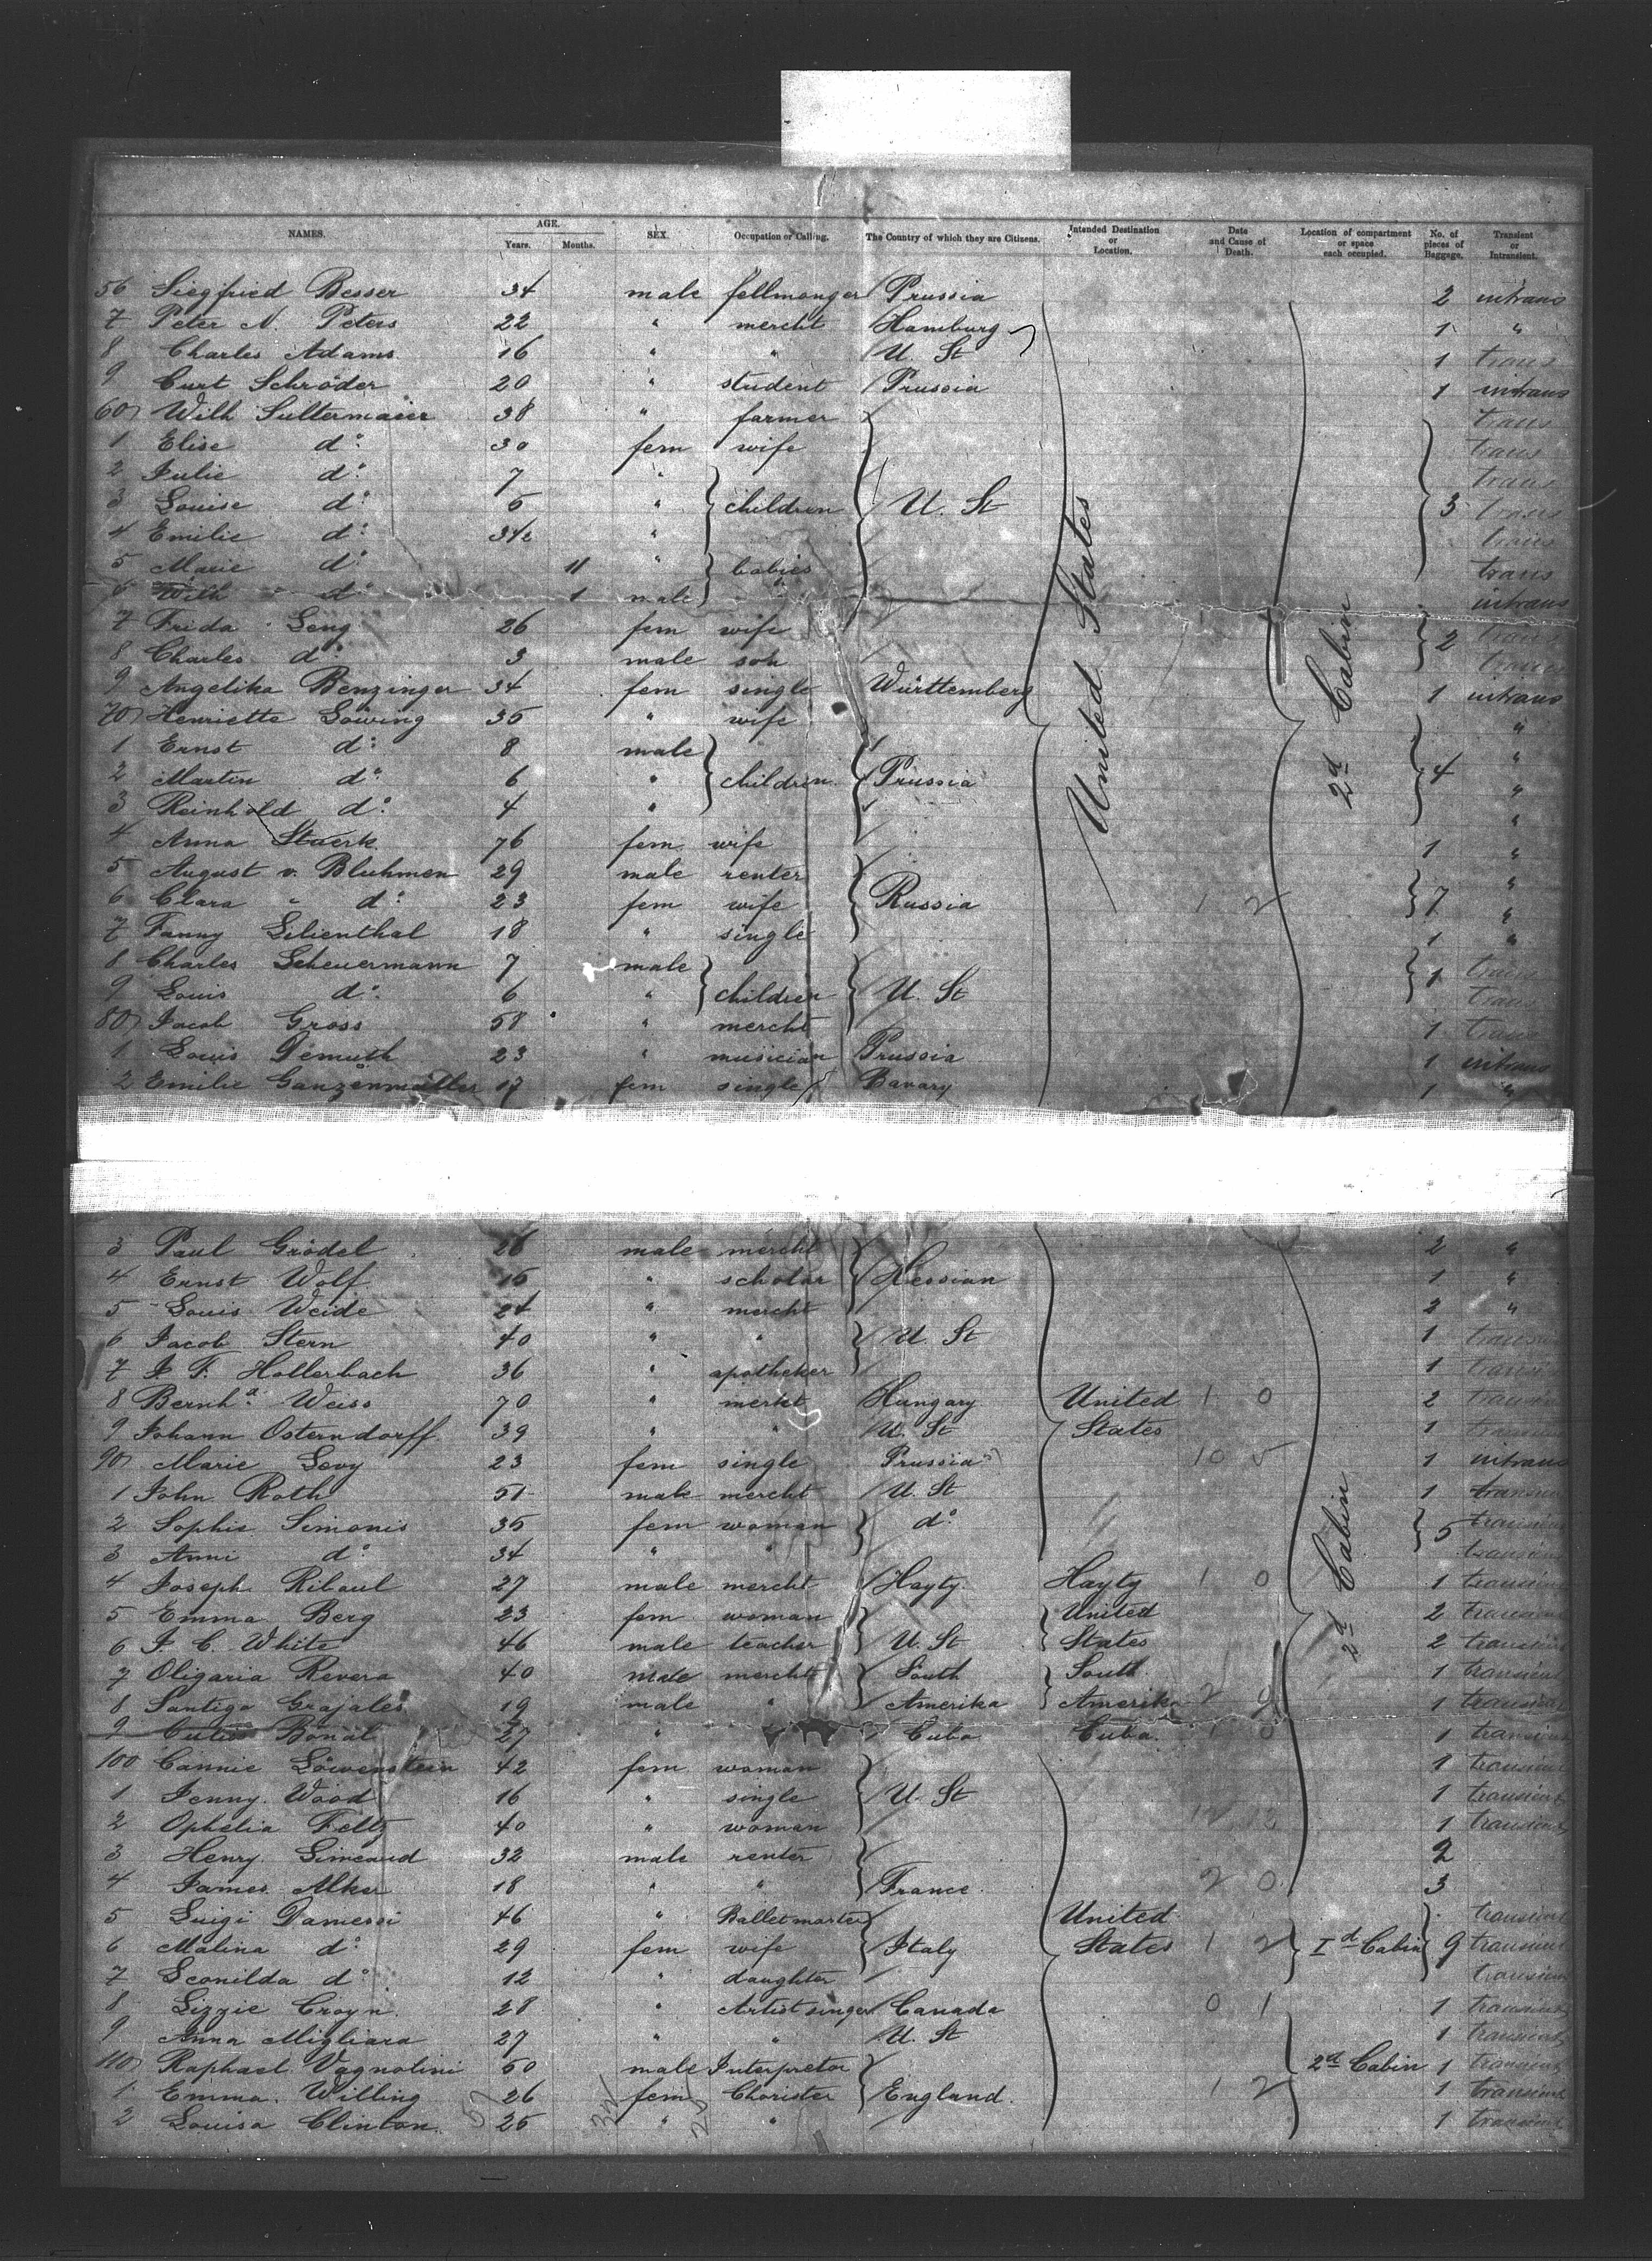 NAMES. AGE. Years. Months. SEX. Occupation or Calling. The Country of which they are Citizens. Intended Destination or Location. Date and Cause of Death. Location of compartment or space each occupied. No. of pieces of Baggage. Transient or Intransient.
56 Siegfried Besser 34 male fellmonger Prussia 2 intrans
7 Peter N. Peters 22 " mercht Hamburg 1 "
8 Charles Adams 16 " " U. St 1 trans
9 Curt Schröder 20 " student Prussia 1 intrans
60 Wilh Sultermaier 38 " farmer trans
1 Elise do: 30 fem wife trans
2 Julie do: 7 " trans
3 Louise do: 5 " children U. St 3 trans
4 Emilie do: 3½ " trans
5 Marie do: 11 " babies trans
6 Wilh do: 1 male intrans
7 Frida Seng 26 fem wife 2 trans
8 Charles do: 3 male son trans
9 Angelika Benzinger 34 fem single Württemberg 1 intrans
70 Henriette Löwing 35 " wife "
1 Ernst do: 8 male "
2 Martin do: 6 " children Prussia United States 2d Cabin 4 "
3 Reinhold do: 4 " "
4 Anna Staerk 76 fem wife 1 "
5 August v. Bluhmen 29 male renter "
6 Clara " do: 23 fem wife Russia 1 2 7 "
7 Fanny Lilienthal 18 " single 1 "
8 Charles Scheuermann 7 male trans
9 Louis do: 6 " children U. St 1 trans
80 Jacob Gross 58 " mercht 1 trans
1 Louis Demuth 23 " musician Prussia 1 intrans
2 Emilie Ganzenmüller 17 fem single Bavary 1 "
3 Paul Grödel 26 male mercht 2 "
4 Ernst Wolf 15 " scholar Hessian 1 "
5 Louis Weide 24 " mercht 2 "
6 Jacob Stern 40 " " U. St 1 transient
7 J. F. Hollerbach 36 " apotheker 1 transient
8 Bernhd. Weiss 70 " mercht Hungary United 1 0 2 transient
9 Johann Osterndorff 39 " " U. St States 1 transient
90 Marie Levy 23 fem single Prussia 10 5 1 intrans
1 John Roth 51 male mercht U. St 1 transient
2 Sophie Simonis 35 fem woman do: 5 transient
3 Anni do: 34 " " transient
4 Joseph Ribaul 27 male mercht Hayty Hayty 1 0 2d Cabin 1 transient
5 Emma Berg 23 fem woman United 2 transient
6 J. C. White 46 male teacher U. St States 2 transient
7 Oligaria Revera 40 male mercht South South 1 transient
8 Santigo Grajales 19 male " Amerika Amerika 2 0 1 transient
9 Bonal 27 " Cuba Cuba. 1 0 1 transient
100 Cannie Löwenstein 42 fem woman 1 transient
1 Jenny Wood 16 " single U. St 1 transient
2 Ophelia Feltz 40 " woman 1 transient
3 Henry Simeaud 32 male renter 2
4 James Alker 18 " " France 2 0 3
5 Luigi Damessi 46 " Ballet master United transient
6 Malina do: 29 fem wife Italy States 1 2 Id Cabin 9 transient
7 Leonilda do: 12 " daughter transient
8 Lizzie Croyn 28 " Artist singer Canada 0 1 1 transient
9 Anna Migliara 27 " " U. St 1 transient
110 Raphael Vagnolini 50 male Interpretor 2d Cabin 1 transient
1 Emma Willing 26 fem Chorister England 1 2 1 transient
2 Louisa Clinton 25 " " 1 transient